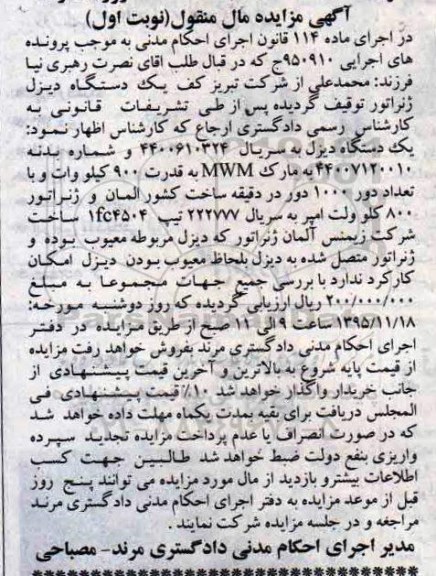 آگهی مزایده مال منقول(نوبت اول)
در اجرای ماده ۱۱۴ قانون اجرای احکام مدنی به موجب پرونده
های اجرایی ۹۵۰۹۱۰ج که در قبال طلب اقای نصرت رهبری نیا
فرزند: محمدعلی از شرکت تبریز کف یک دستگاه دیزل
ژنراتور توقیف گردیده پس از طی تشریفات قانونی به
کارشناس رسمی دادگستری ارجاع که کارشناس اظهار نمود:
یک دستگاه دیزل به سریال ۴۴۰۰۶۱۰۳۲۴ و شماره بدنه
۴۴۰۰۷۱۲۰۰۱۰به مارک MWM به قدرت ۹۰۰ کیلو وات و با
تعداد دور ۱۰۰۰ دور در دقیقه ساخت کشور المان و ژنراتور
۸۰۰ کلو ولت امپر به سریال ۲۲۲۷۷۷ تیپ ۱fc۴۵۰۴ ساخت
شرکت زیمنس آلمان ژنراتور که دیزل مربوطه معیوب بوده و
ژنراتور متصل شده به دیزل بلحاظ معیوب بودن دیزل امکان
کارکرد ندارد با بررسی جمیع جهات مجموعا به مبلغ
۲۰۰/۰۰۰/۰۰۰ ریال ارزیابی گردیده که روز دوشنبه مورخه:
۱۳۹۵/۱۱/۱۸ ساعت ۹ الی ۱۱ صبح از طریق مزایده در دفتر
اجرای احکام مدنی دادگستری مرند بفروش خواهد رفت مزایده
از قیمت پایه شروع به بالاترین و آخرین قیمت پیشنهادی از
جانب خریدار واگذار خواهد شد ۱۰٪ قیمت پیشنهادی فی
المجلس دریافت برای بقیه بمدت یکماه مهلت داده خواهد شد
که در صورت انصراف یا عدم پرداخت مزایده تجدید سپرده
واریزی بنفع دولت ضبط خواهد شد طالبین جهت کسب
اطلاعات بیشتر و بازدید از مال مورد مزایده می توانند پنج روز
قبل از موعد مزایده به دفتر اجرای احکام مدنی دادگستری مرند
مراجعه و در جلسه مزایده شرکت نمایند.
مدیر اجرای احکام مدنی دادگستری مرند- مصباحی